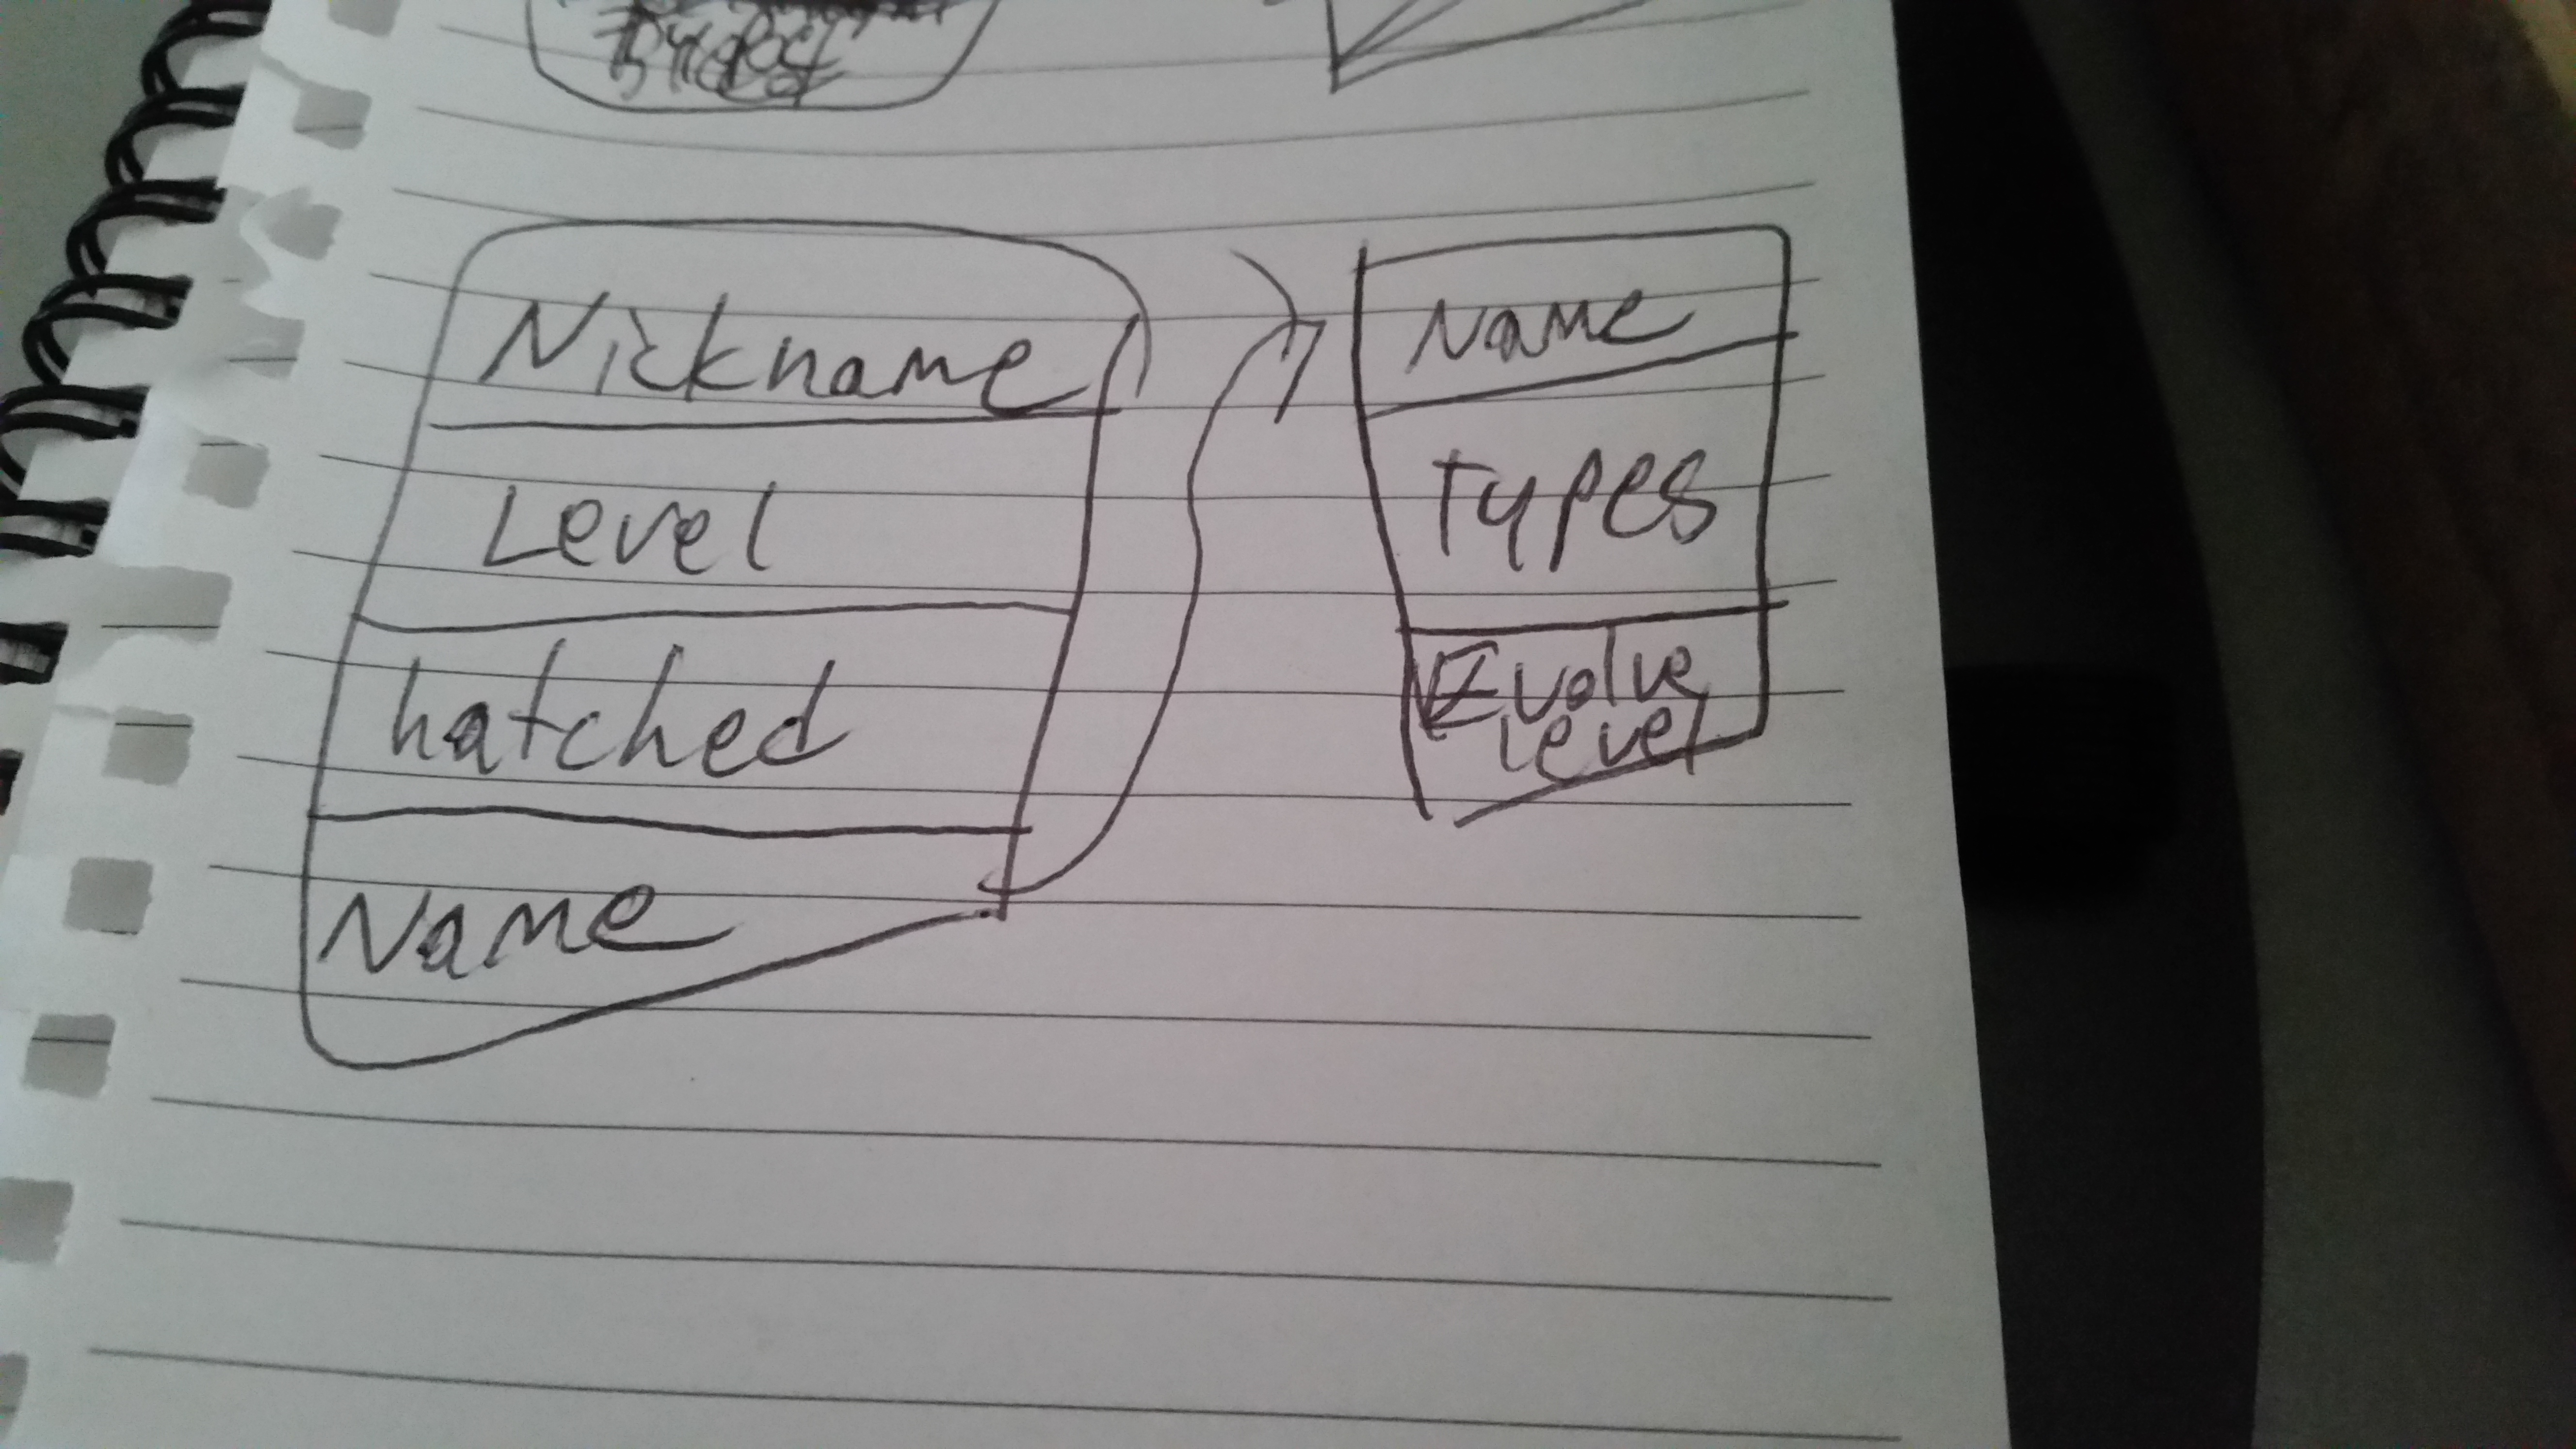 Nickname
Level
hatched
Name
Name
Types
Evolve
level